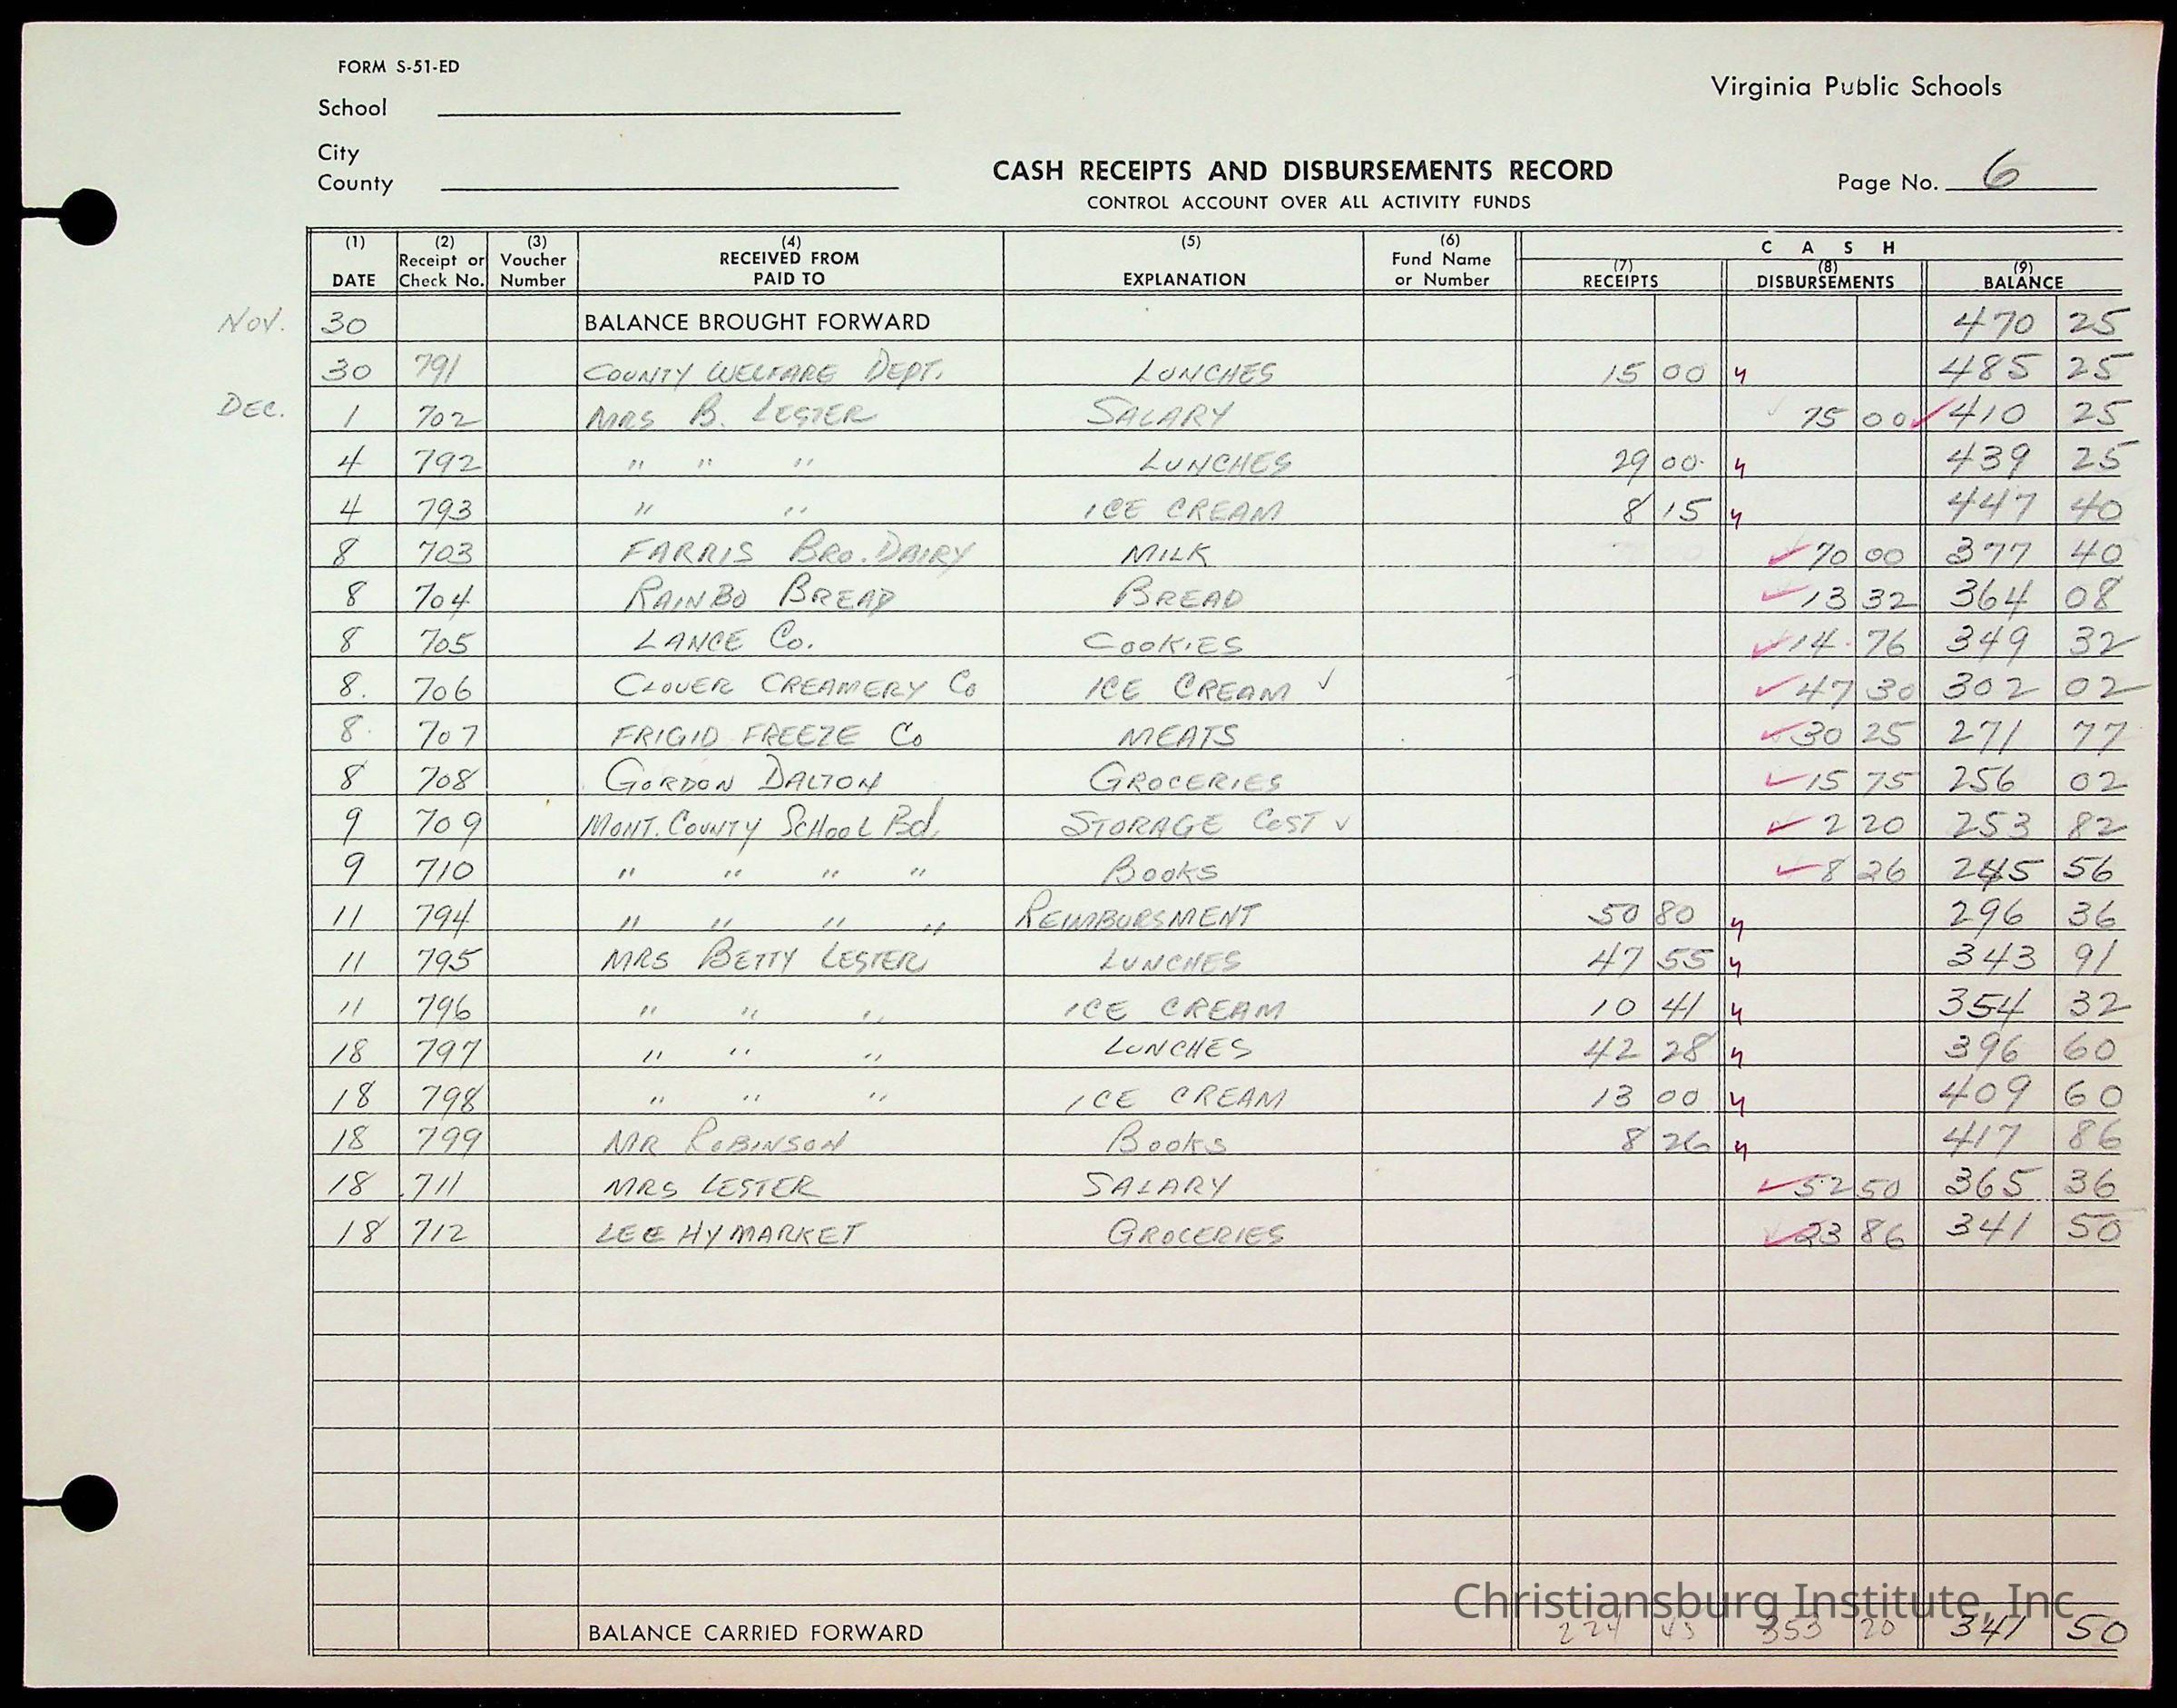 FORM S-51-ED
Virginia Public Schools
School
City
County
CASH RECEIPTS AND DISBURSEMENTS RECORD
CONTROL ACCOUNT OVER ALL ACTIVITY FUNDS
Page No. 6
(1) DATE (2) Receipt or Check No. (3) Voucher Number (4) RECEIVED FROM PAID TO (5) EXPLANATION (6) Fund Name or Number CASH (7) RECEIPTS (8) DISBURSEMENTS (9) BALANCE
Nov. 30 BALANCE BROUGHT FORWARD 470 25
30 791 COUNTY WELFARE DEPT. LUNCHES 15 00 485 25
DEC. 1 702 MRS B. LESTER SALARY ✓ 75 00 ✓ 410 25
4 792 " " " LUNCHES 29 00 439 25
4 793 " " ICE CREAM 8 15 447 40
8 703 FARRIS BRO. DAIRY MILK ✓ 70 00 377 40
8 704 RAINBO BREAD BREAD ✓ 13 32 364 08
8 705 LANCE Co. COOKIES ✓ 14 76 349 32
8. 706 CLOVER CREAMERY Co ICE CREAM ✓ ✓ 47 30 302 02
8. 707 FRIGID FREEZE Co MEATS ✓ 30 25 271 77
8 708 GORDON DALTON GROCERIES ✓ 15 75 256 02
9 709 MONT. COUNTY SCHOOL Bd. STORAGE COST ✓ ✓ 2 20 253 82
9 710 " " " " BOOKS ✓ 8 26 245 56
11 794 " " " " REIMBURSMENT 50 80 296 36
11 795 MRS BETTY LESTER LUNCHES 47 55 343 91
11 796 " " " ICE CREAM 10 41 354 32
18 797 " " " LUNCHES 42 28 396 60
18 798 " " " ICE CREAM 13 00 409 60
18 799 MR ROBINSON BOOKS 8 26 417 86
18 711 MRS LESTER SALARY ✓ 52 50 365 36
18 712 LEE HY MARKET GROCERIES ✓ 23 86 341 50
Christiansburg Institute, Inc
BALANCE CARRIED FORWARD 224 45 353 20 341 50